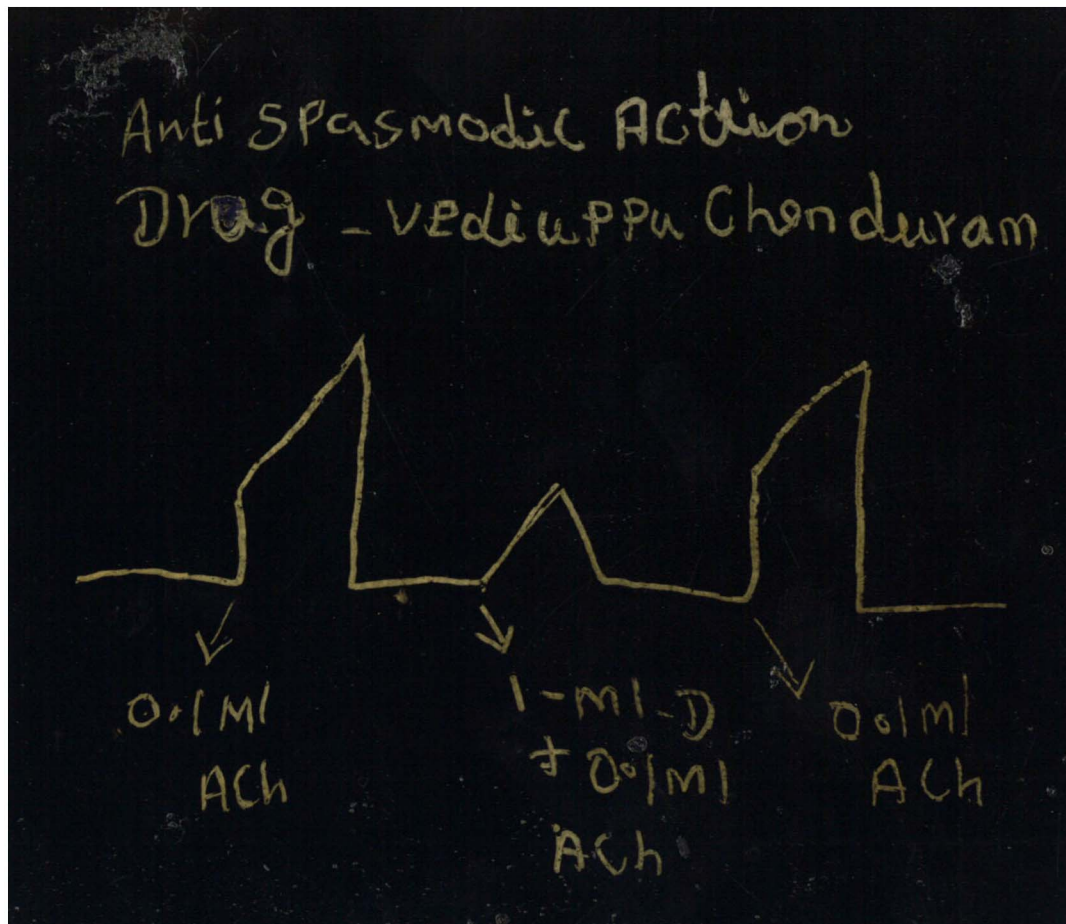 Anti Spasmodic Action
Drug - Vediuppu Chenduram
0.1 Ml
ACh
1-ml-D
+ 0.1 Ml
ACh
0.1 ml
ACh